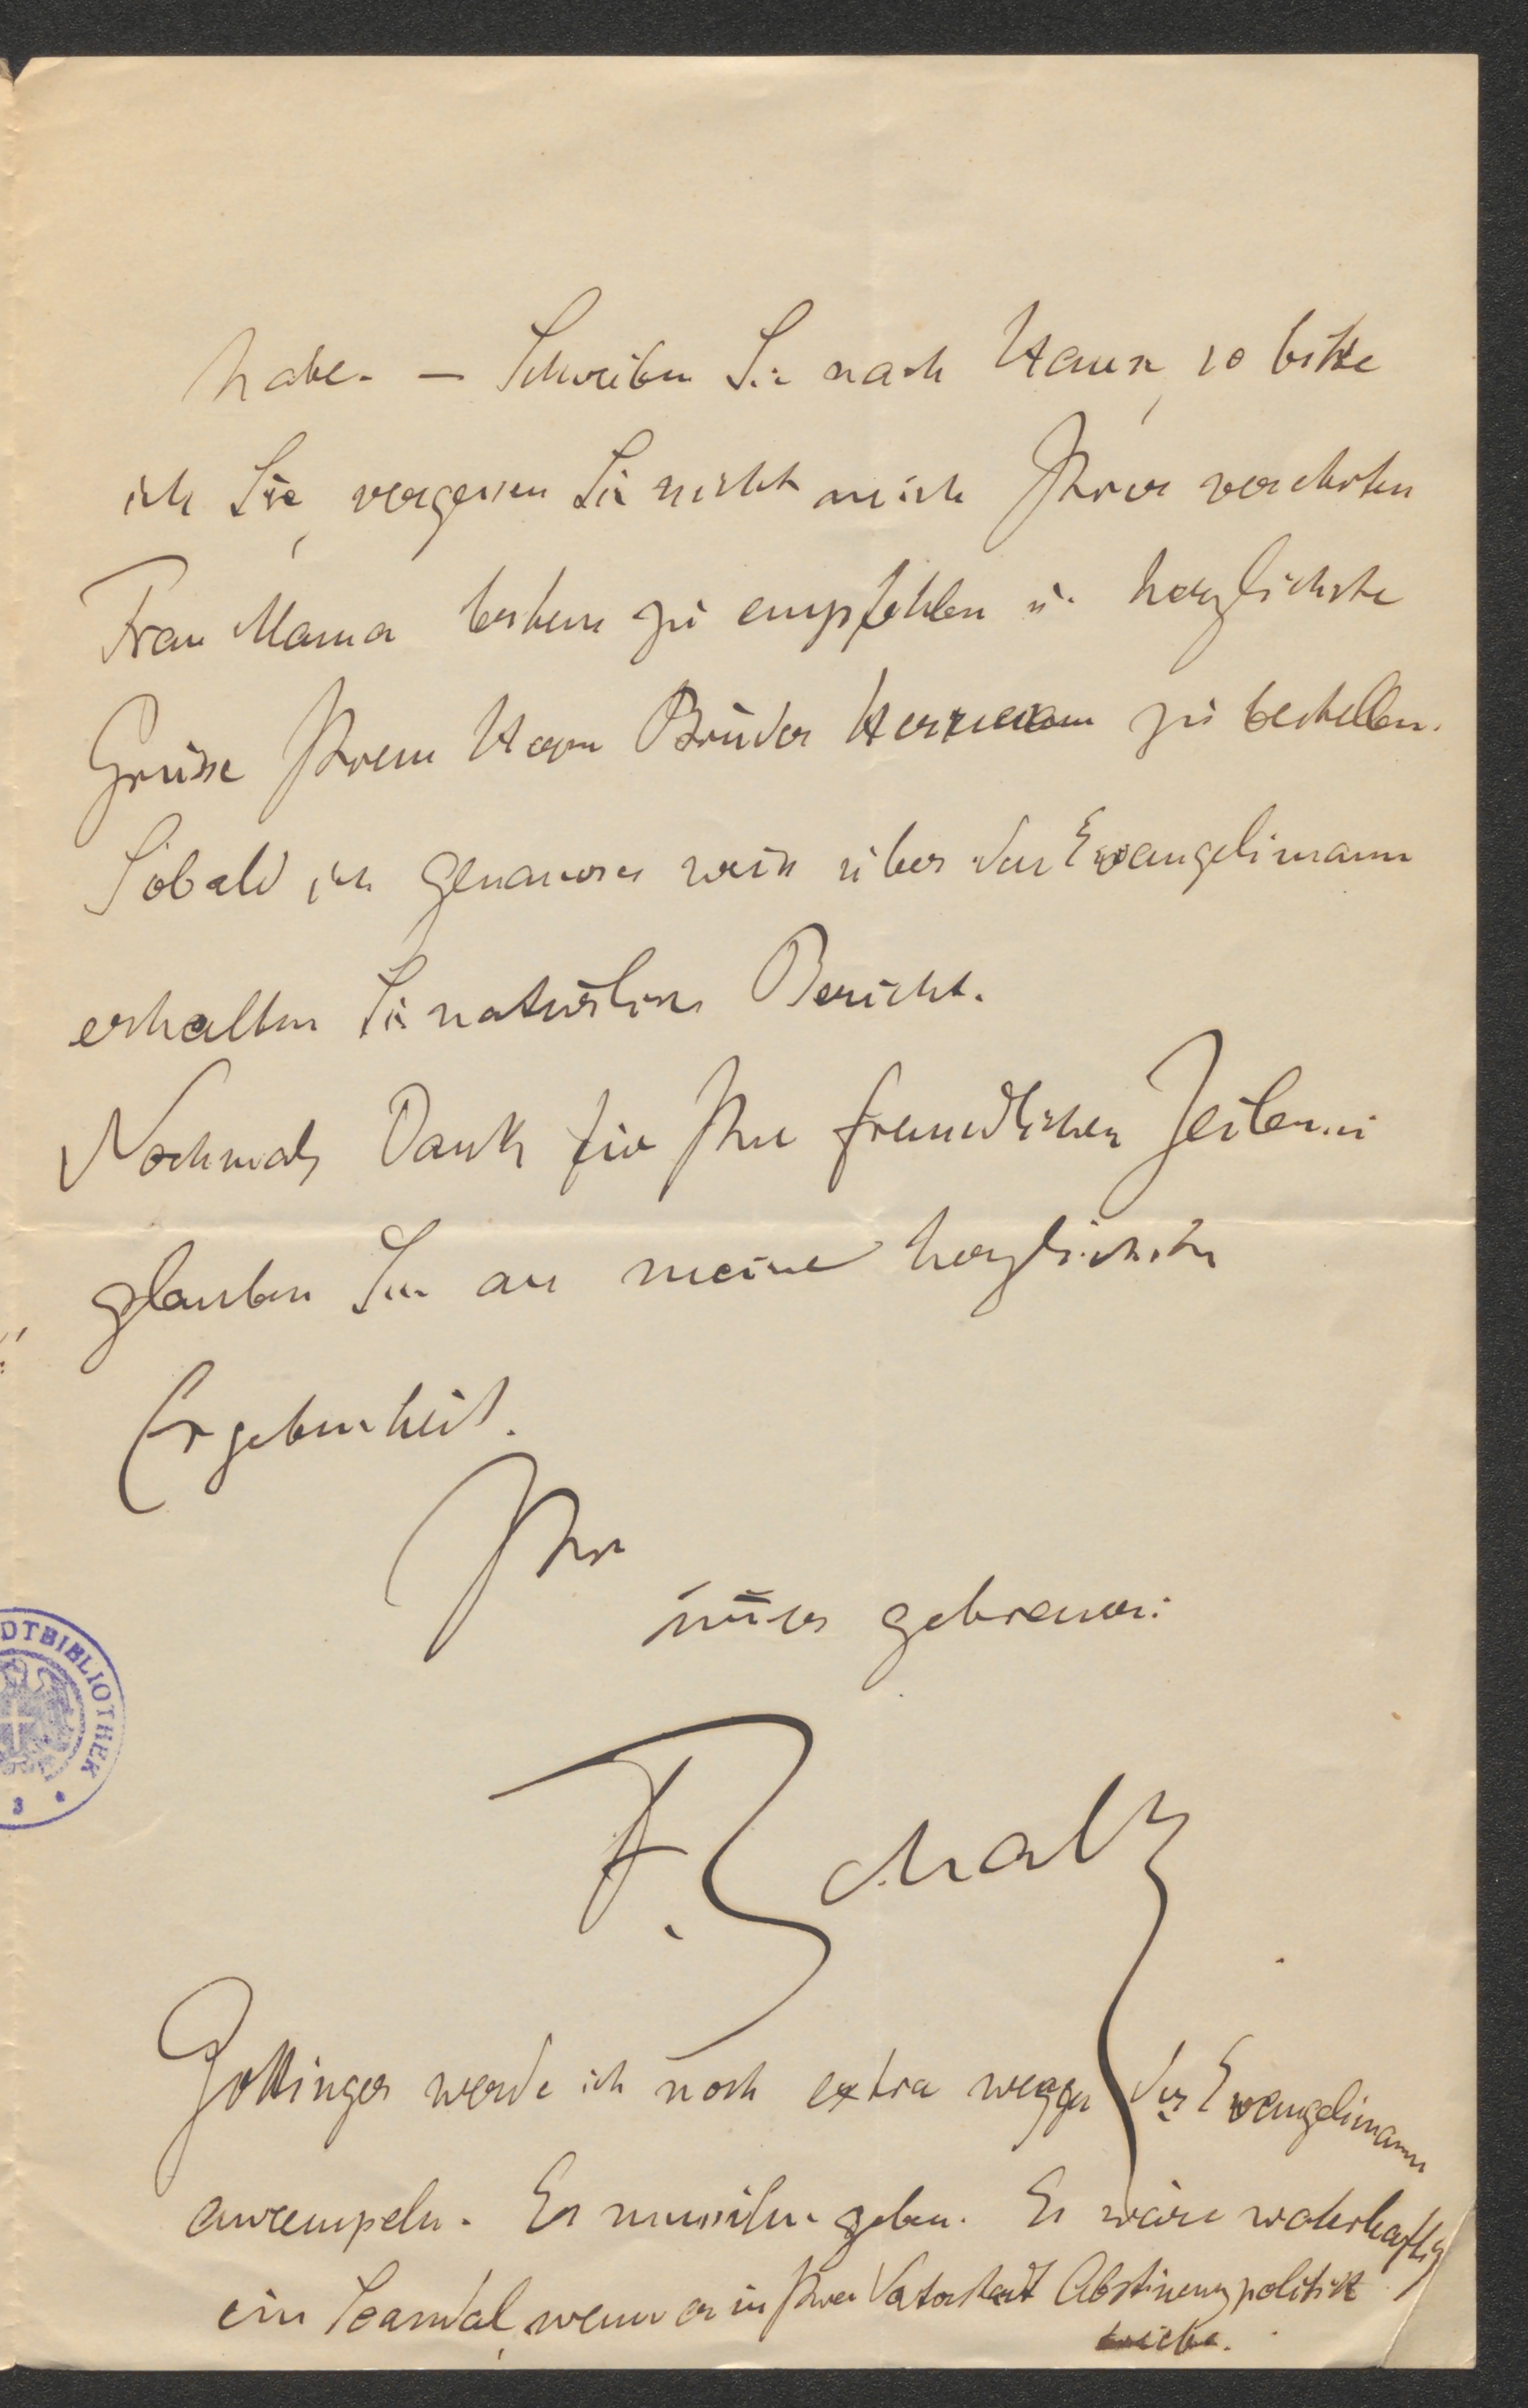 habe. — Schreiben Sie nach Hause, so bitte
ich Sie, vergessen Sie nicht mich Ihrer verehrten
Frau Mama bestens zu empfehlen u. herzlichste
Grüsse Ihrem Herrn Bruder Hermann zu bestellen.
Sobald ich genaueres weiss über den Evangelimann
erhalten Sie natürlich Bericht.
Nochmals Dank für Ihre freundlichen Zeilen u
glauben Sie an meine herzlichste
Ergebenheit.
Ihr
getreuer:
F. Schalk
DTBIBLIOTHEK
3 *
Gottinger werde ich noch extra wegen des Evangelimann
anrempeln. Er muss ihn geben. Es wäre wahrhaftig
ein Scandal, wenn er in Ihrer Vaterstadt Abstinenzpolitik
triebe.